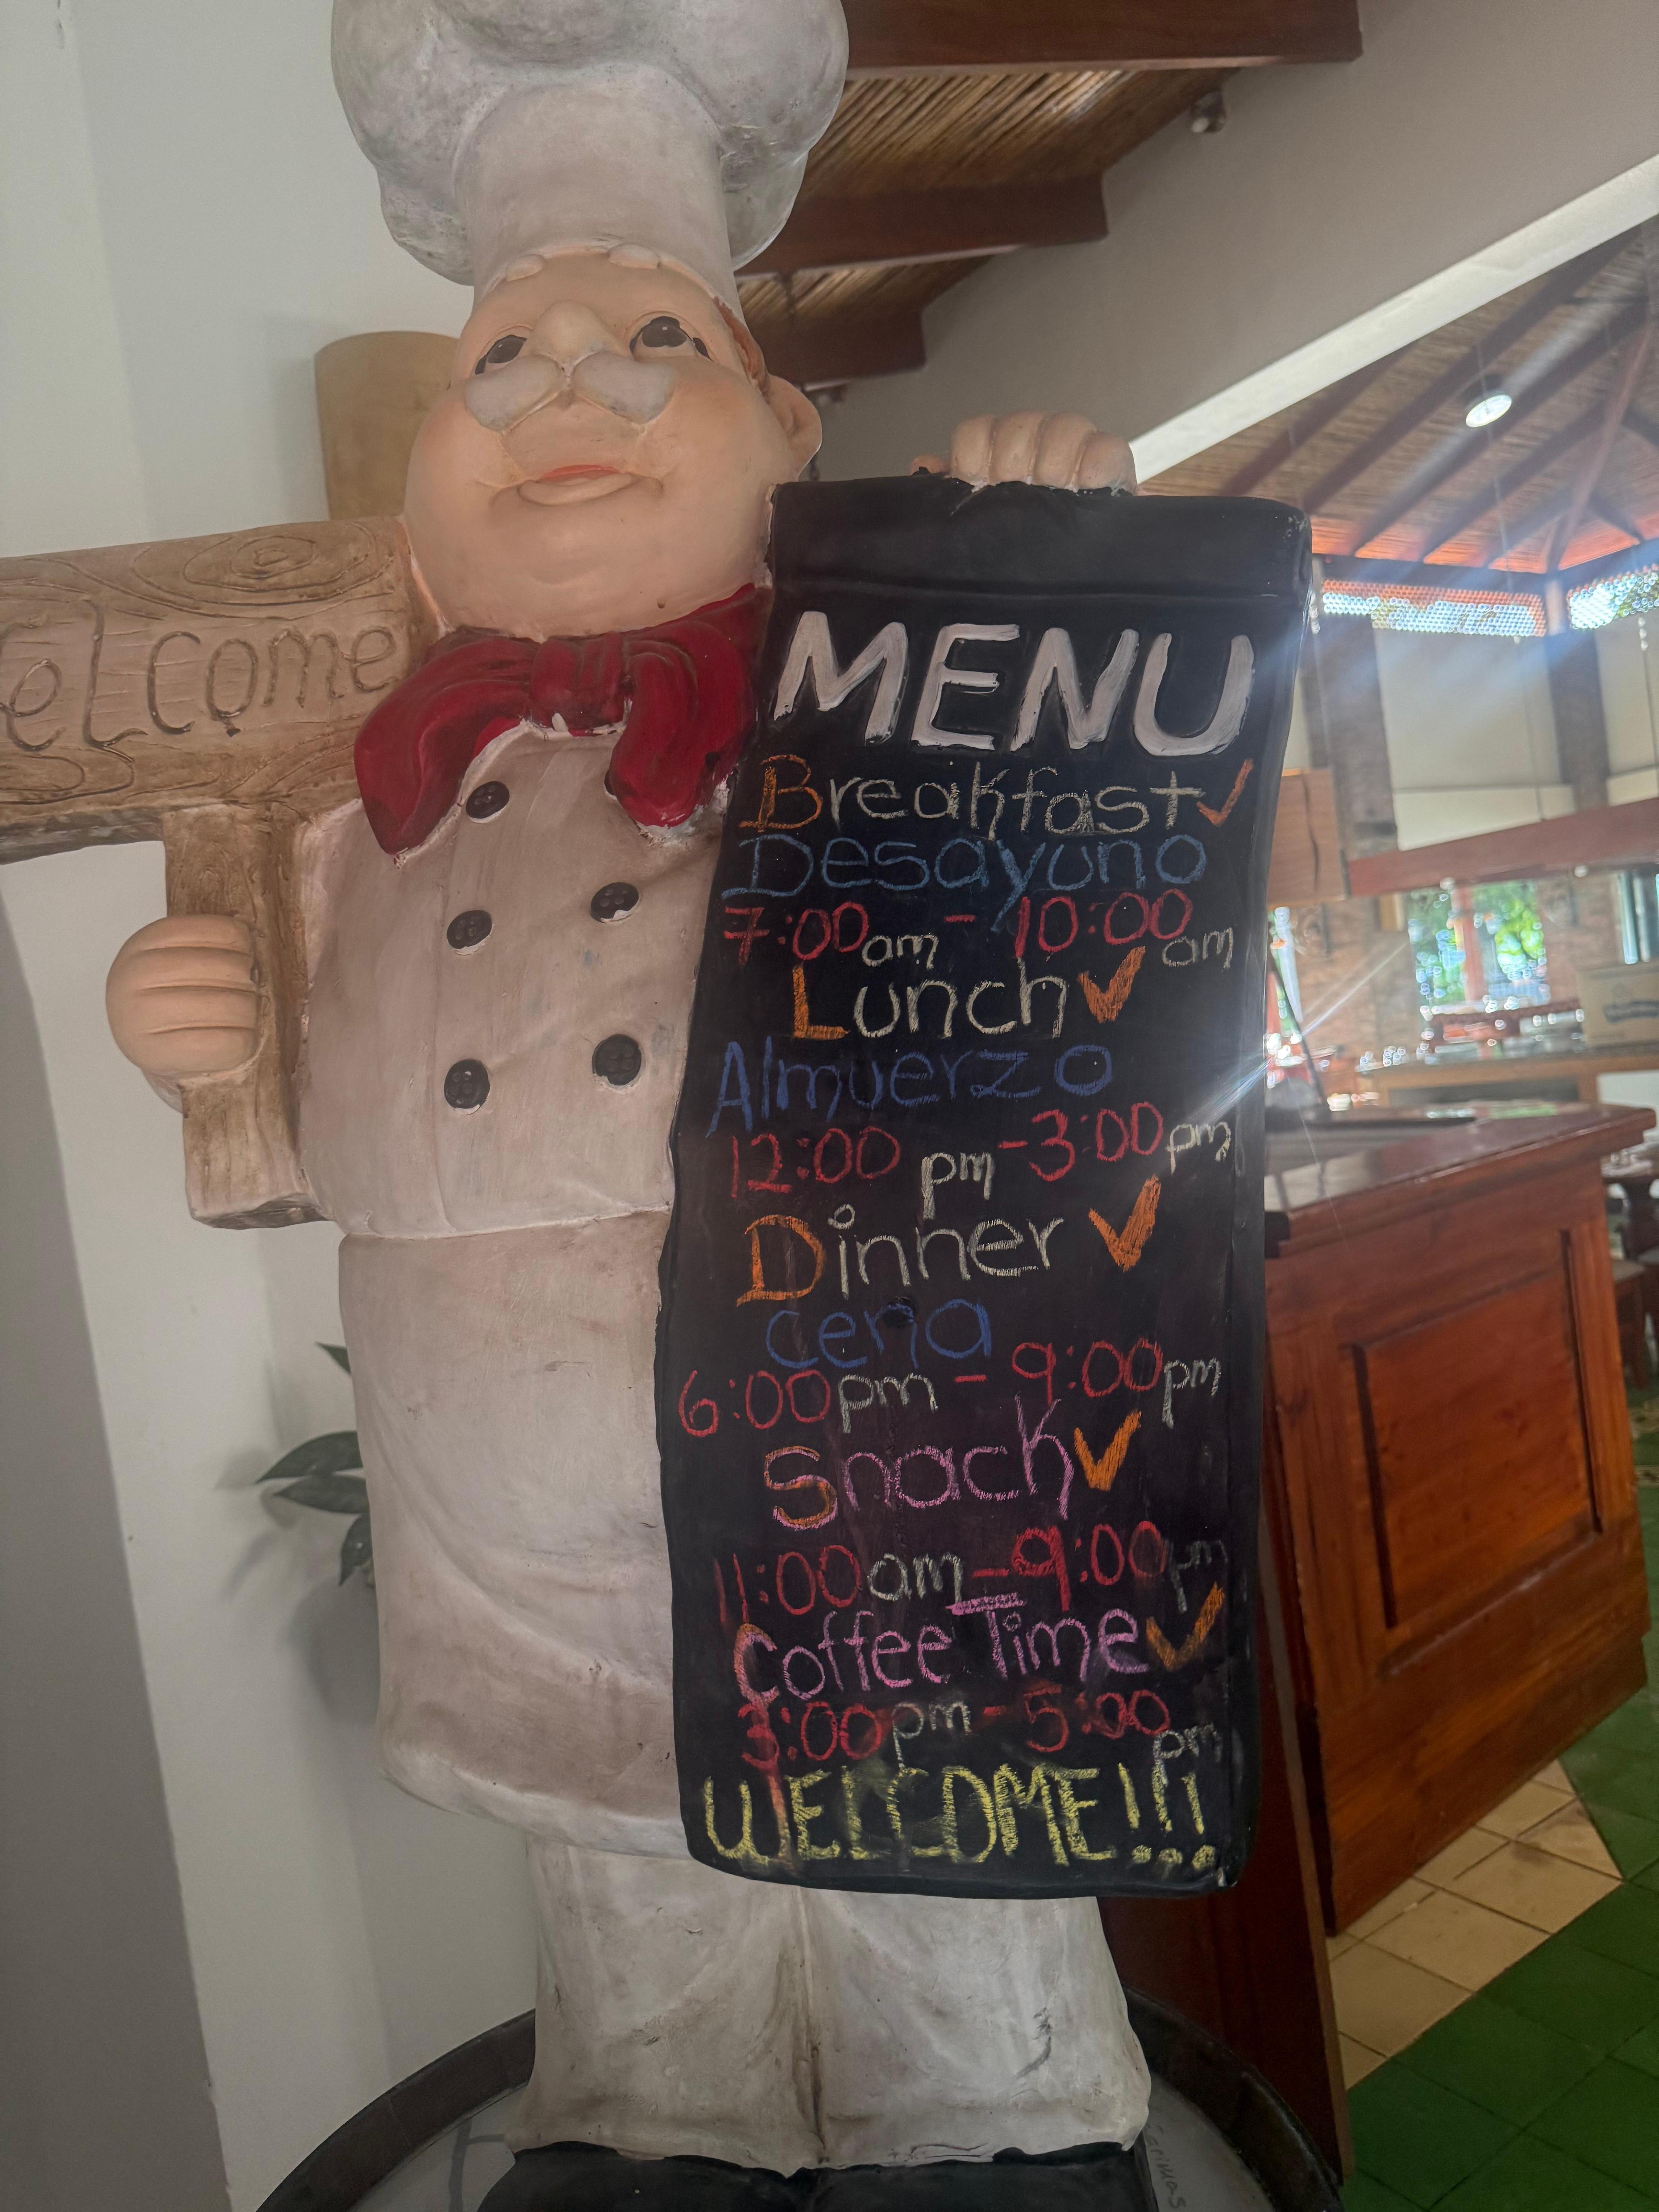 elcome
MENU
Breakfast✓
Desayuno
7:00am - 10:00am
Lunch✓
Almuerzo
12:00 pm - 3:00pm
Dinner ✓
cena
6:00pm - 9:00pm
Snack✓
11:00am - 9:00pm
Coffee Time✓
3:00pm - 5:00pm
WELCOME!!!